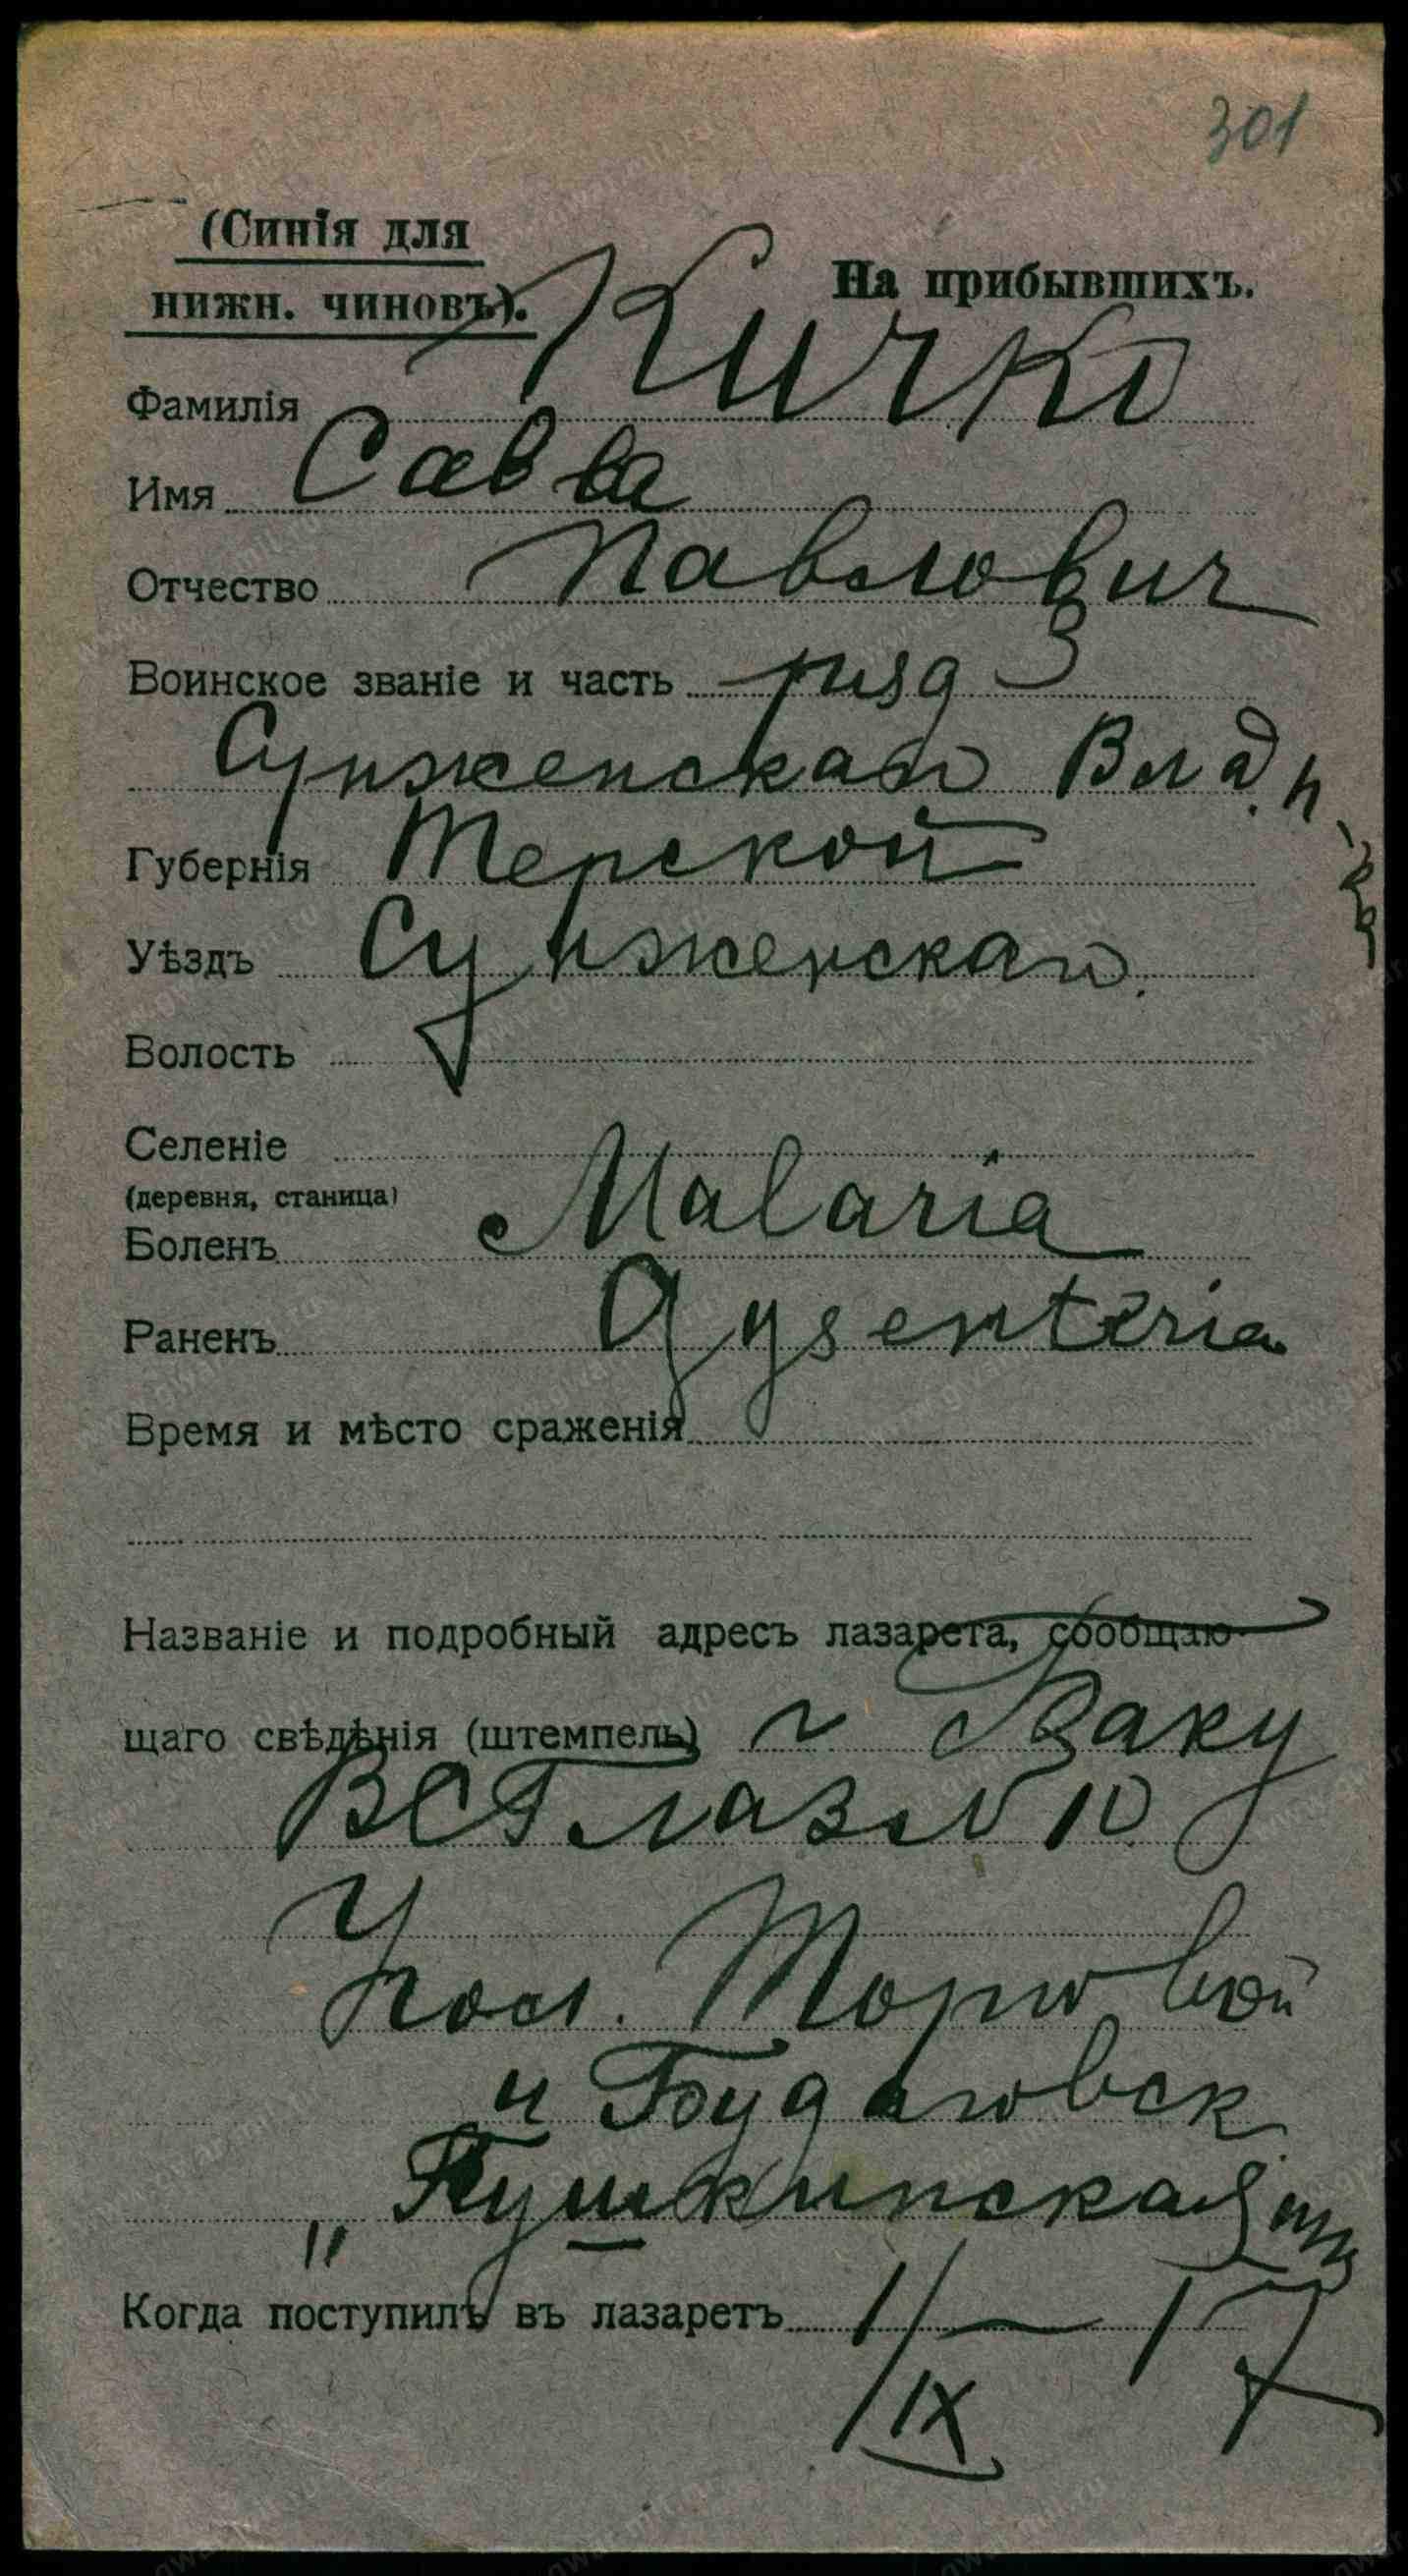 301
(Синія для
нижн. чиновъ).
На прибывшихъ.
Фамилія Кичко
Имя Савва
Отчество Павлович
Воинское званіе и часть ряд 3
Сунженскаго Влад.
Губернія Терской
Уѣздъ Сунженскаго.
Волость
Селеніе
(деревня, станица)
Боленъ Malaria
Раненъ Dysenteria
Время и мѣсто сраженія
Названіе и подробный адресъ лазарета, сообщаю-
щаго свѣдѣнія (штемпель) г Баку
ВСГ лаз № 10
Уг
пом. Торговой
и Будаговск
"Пушкинская
Когда поступилъ въ лазаретъ 1/IX — 17